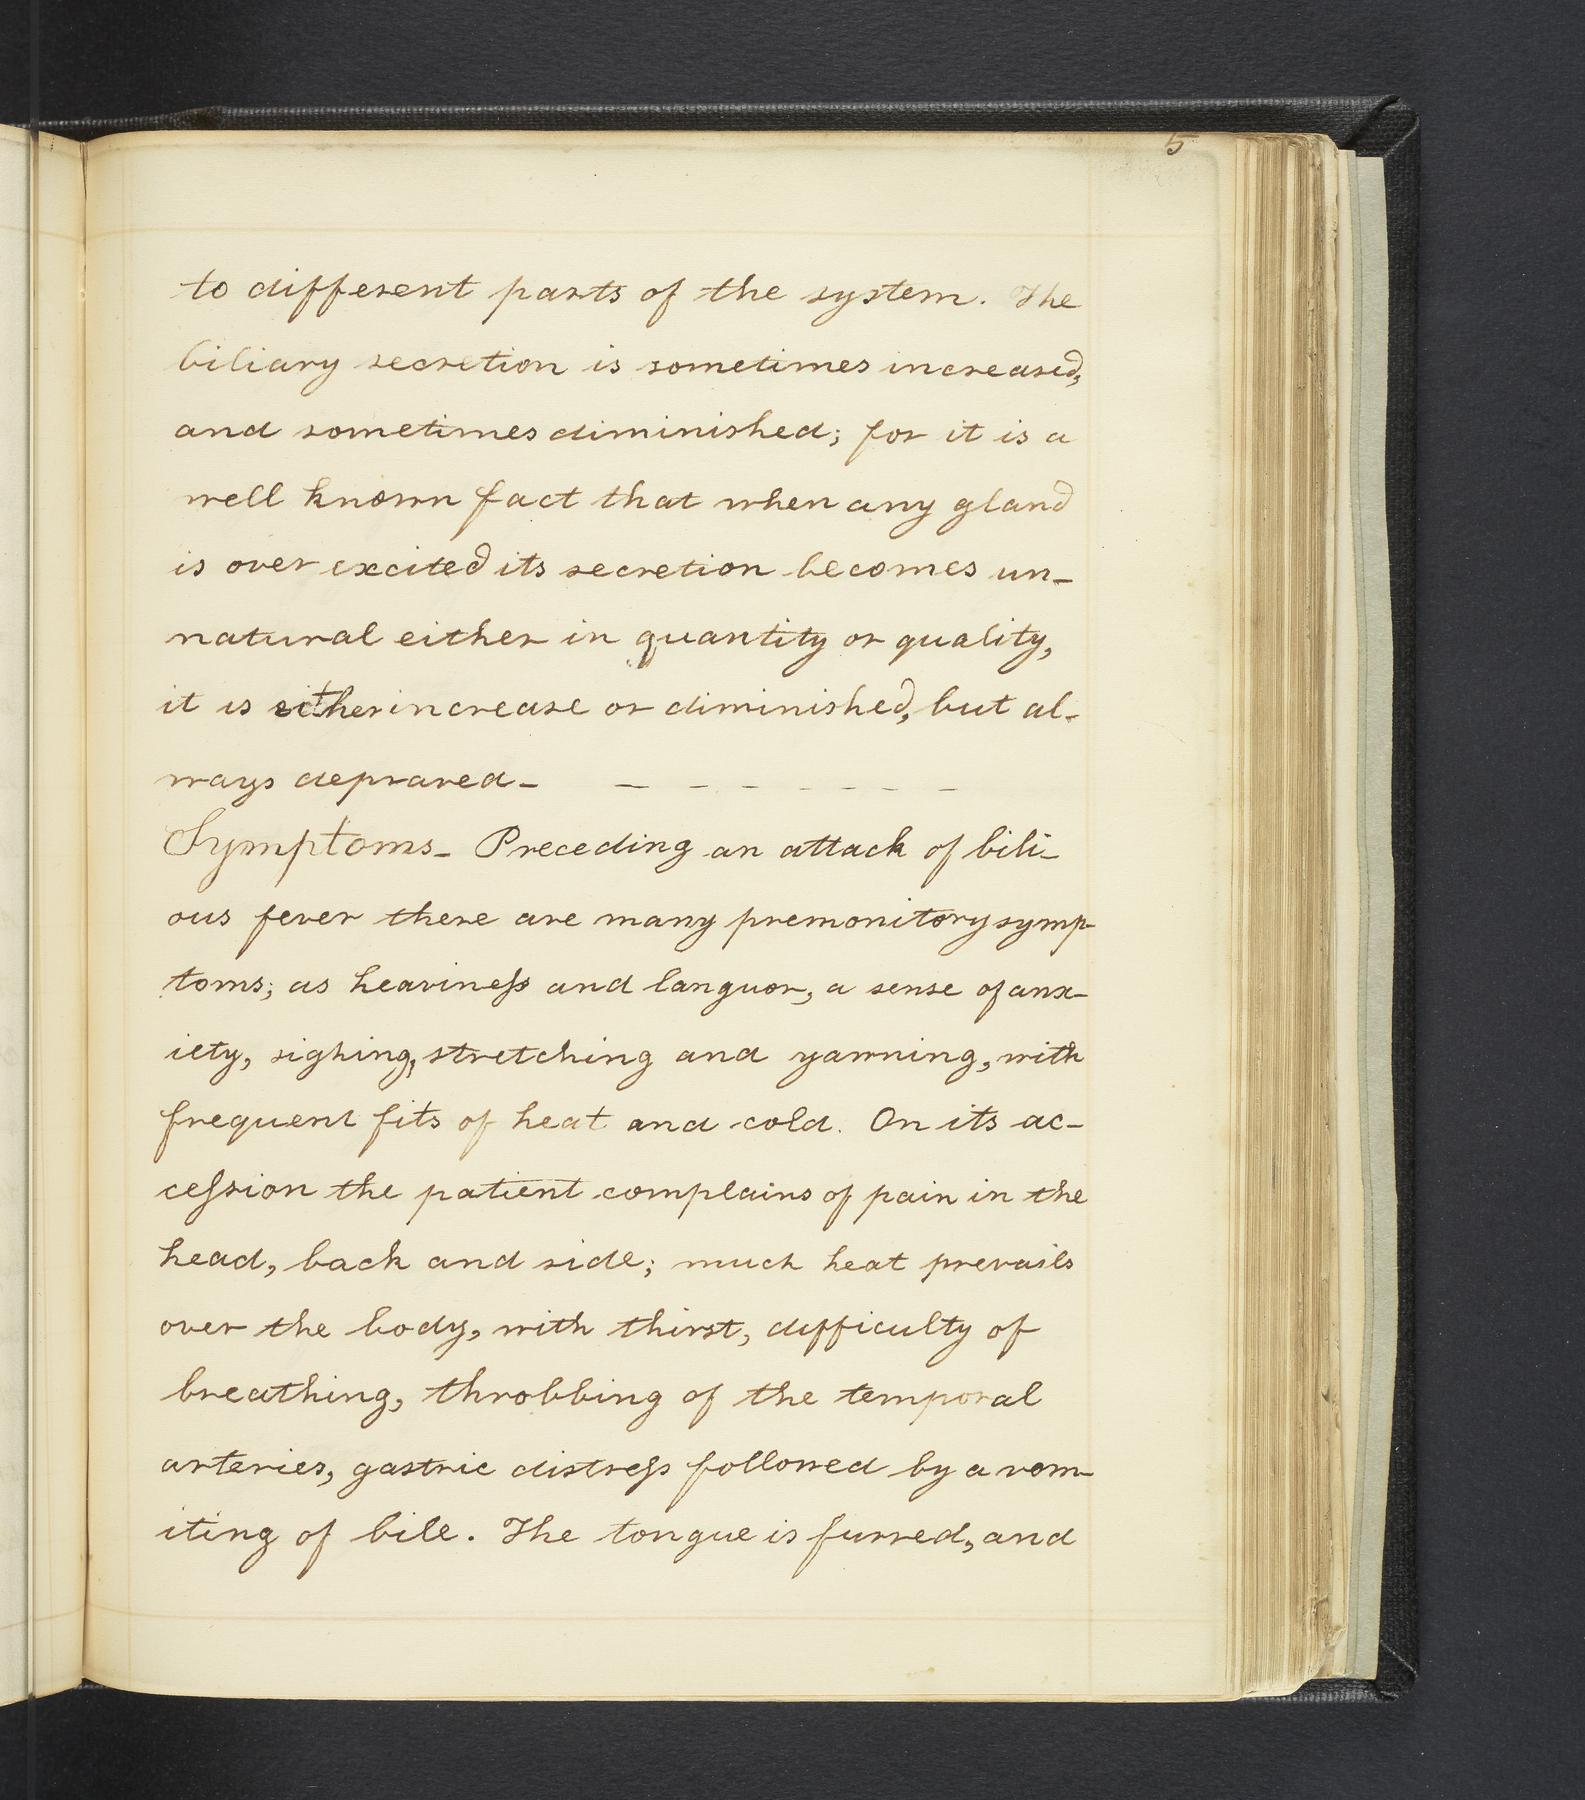 5
to different parts of the system. The
biliary secretion is sometimes increased,
and sometimes diminished; for it is a
well known fact that when any gland
is over excited its secretion becomes un-
natural either in quantity or quality,
it is either increase or diminished, but al-
ways depraved- - - - - - - -
Symptoms- Preceding an attack of bili-
ous fever there are many premonitory symp-
toms; as heaviness and languor, a sense of anx-
iety, sighing, stretching and yawning, with
frequent fits of heat and cold. On its ac-
cession the patient complains of pain in the
head, back and side; much heat prevails
over the body, with thirst, difficulty of
breathing, throbbing of the temporal
arteries, gastric distress followed by a vom-
iting of bile. The tongue is furred, and